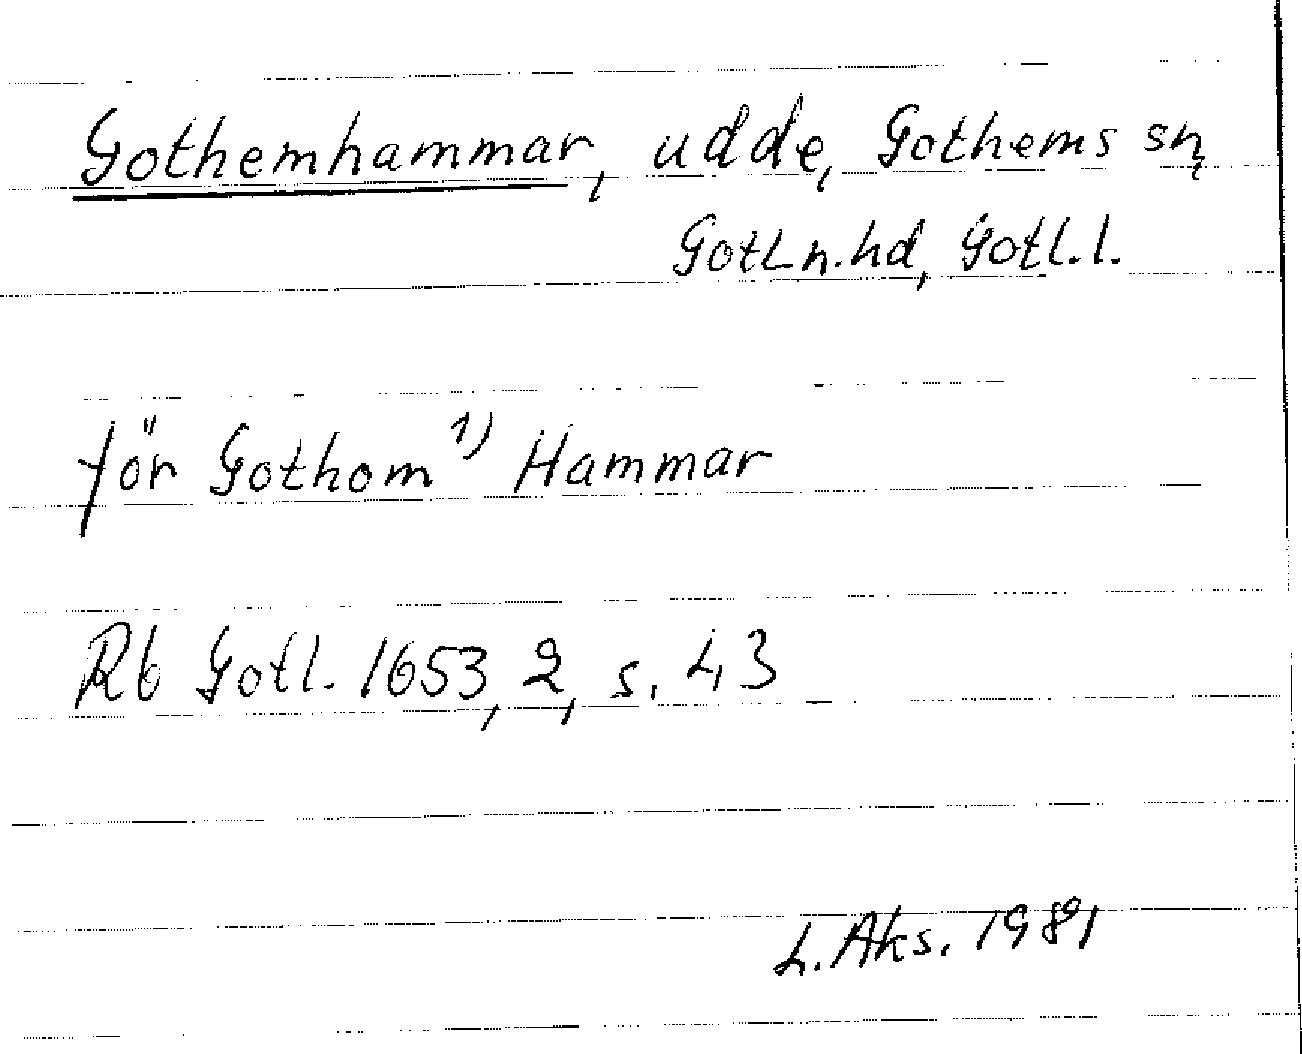 Gothemhammar, udde, Gothems sn,
Gotl.n.hd, Gotl.l.
för Gothom 1) Hammar
Rb Gotl. 1653, 2, s. 43
L. Aks. 1981